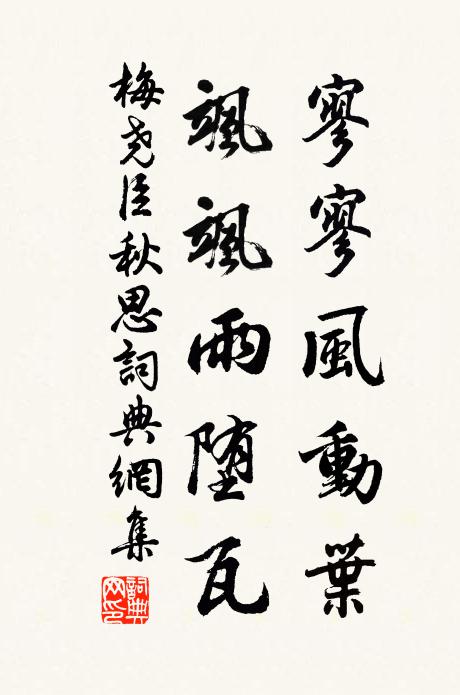 寥寥風動葉
颯颯雨堕瓦
梅尧臣秋思詞典網集
詞典網印